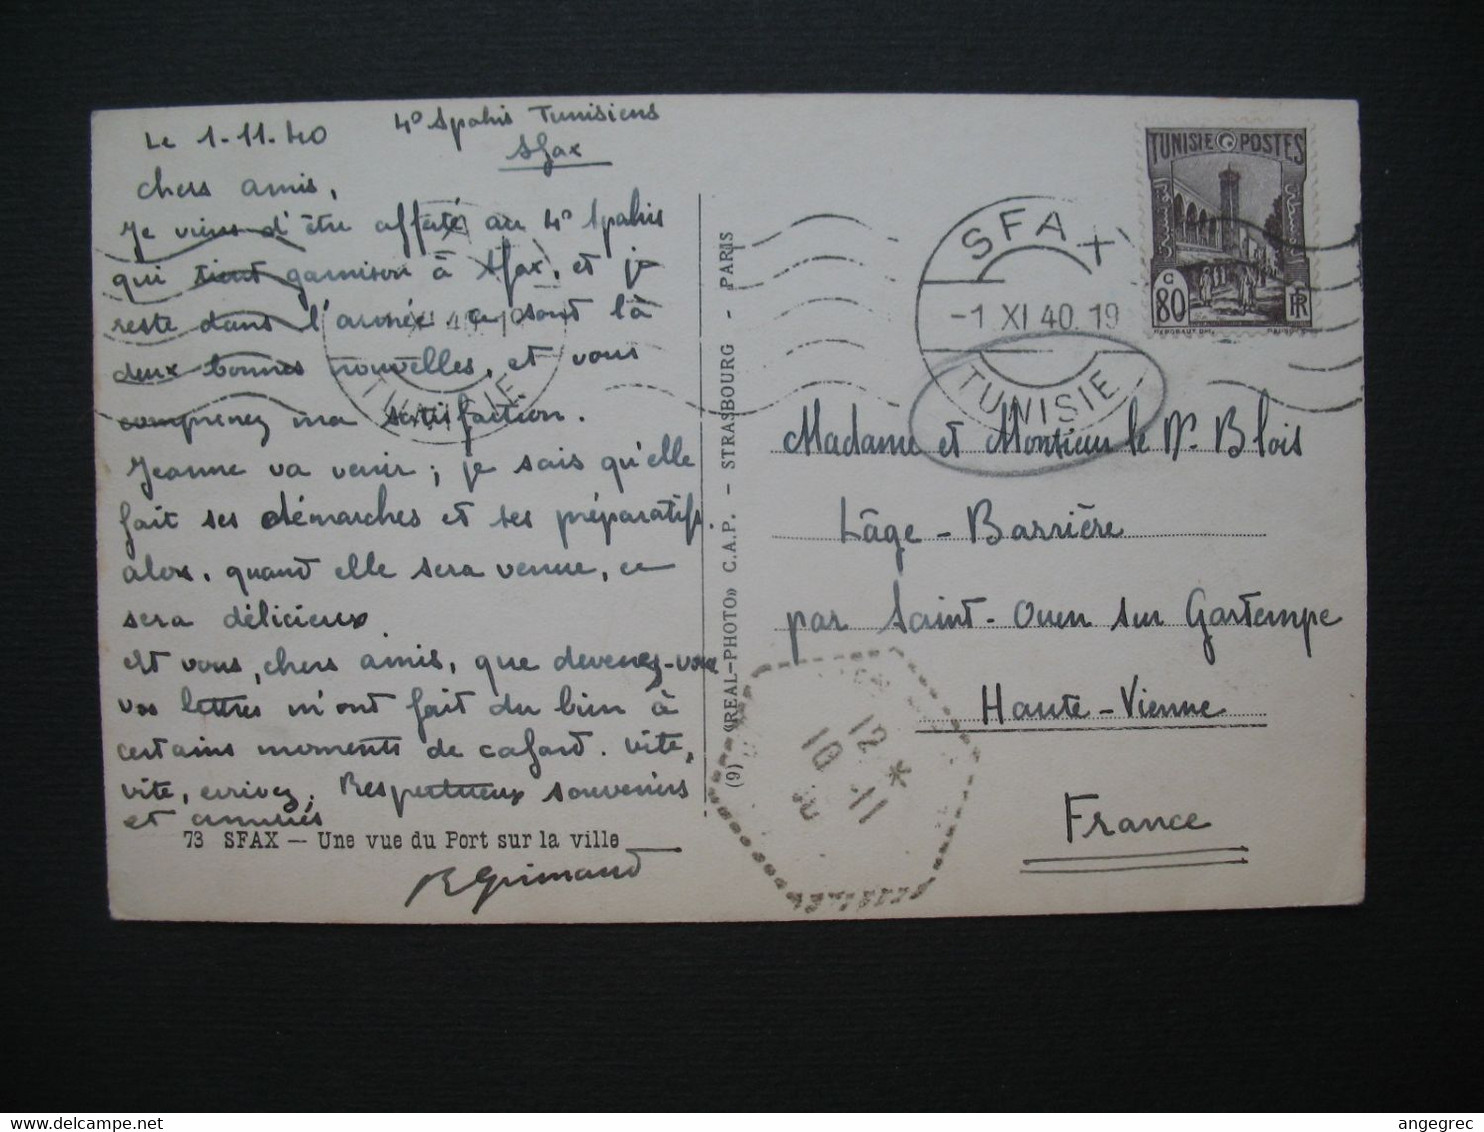 Le 1-11.40
4e Spahis Tunisiens
Sfax
chers amis,
Je viens d'être affecté au 4e Spahis
qui tient garnison à Sfax, et je
reste dans l'armée. ce sont là
deux bonnes nouvelles, et vous
comprenez ma satisfaction.
Jeanne va venir ; je sais qu'elle
fait ses démarches et ses préparatifs.
alors, quand elle sera venue, ce
sera délicieux
Et vous, chers amis, que devenez-vous
vos lettres m'ont fait du bien à
certains moments de cafard. Vite,
vite, écrivez. Respectueux souvenirs
et amitiés
73 SFAX — Une vue du Port sur la ville
R Grimaud
(9) «REAL-PHOTO» C.A.P. - STRASBOURG - PARIS
TUNISIE POSTES
80 C
RF
SFAX
-1 XI 40. 19
TUNISIE
TUNISIE
Madame et Monsieur le Dr Blois
Lâge-Barrière
par Saint-Ouen sur Gartempe
Haute-Vienne
France
12 *
10 -11
delcampe.net
angegrec